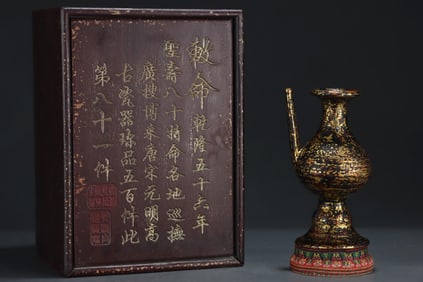 敕命乾隆五十六年
聖壽八十特命各地巡撫
廣搜博采唐宋元明高
古瓷器珍品五百件此
第八十一件